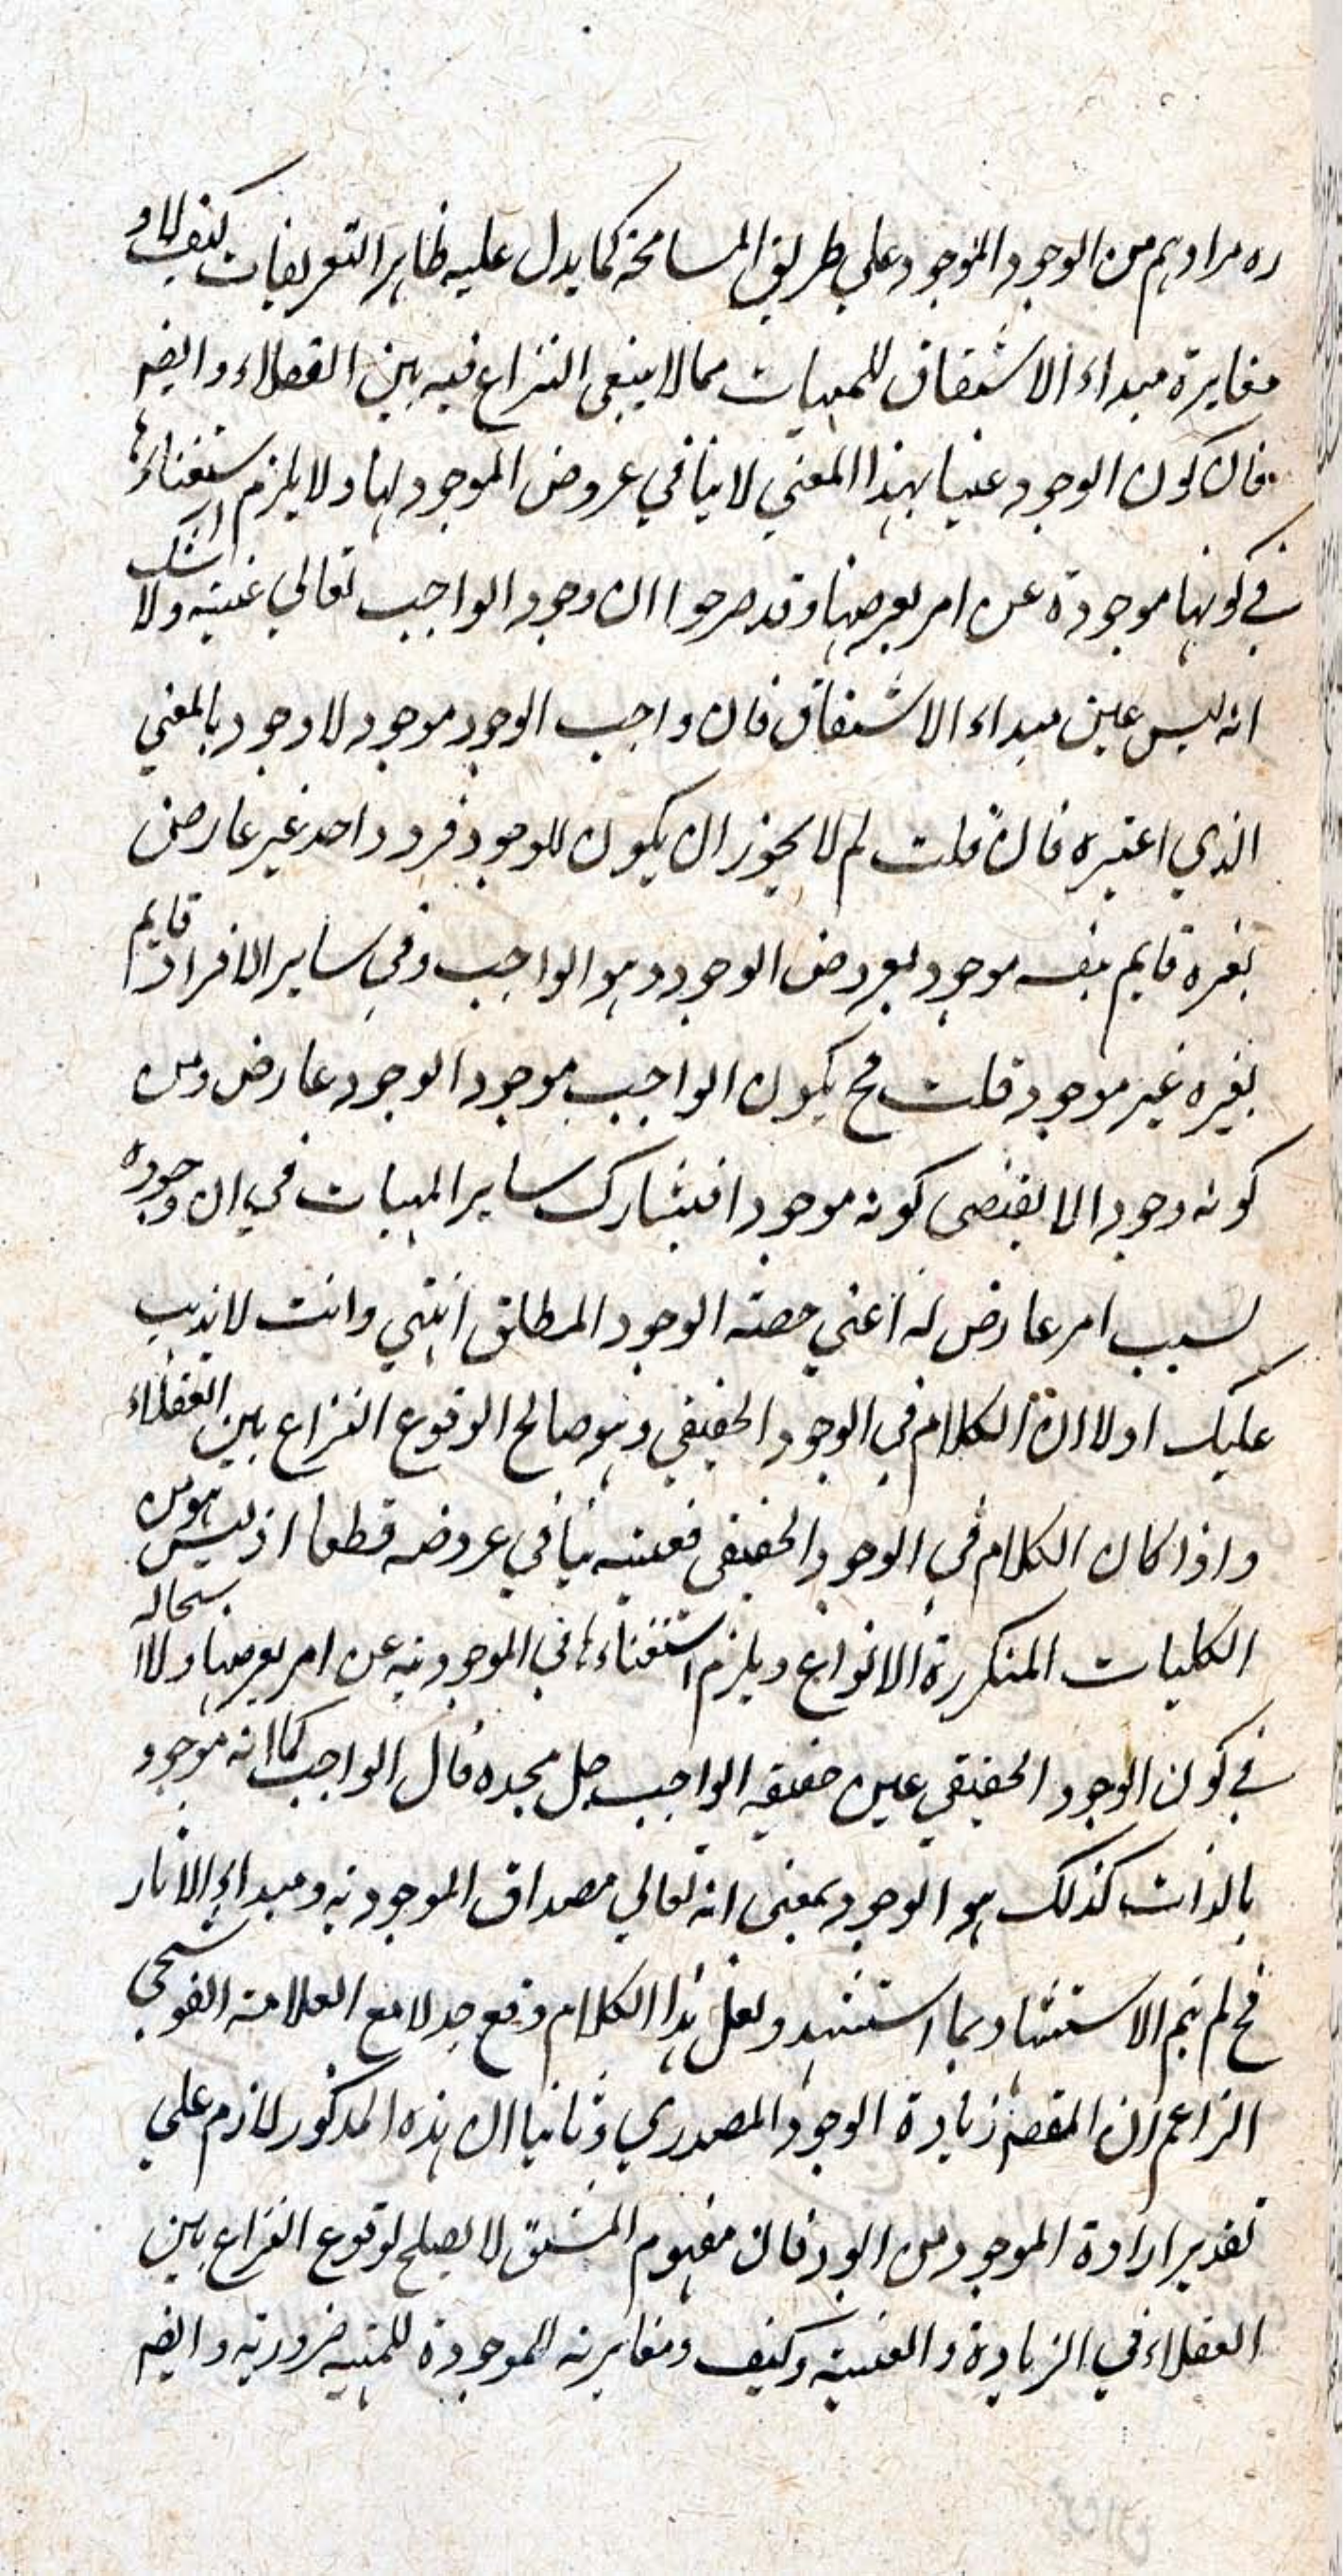 ره مرادهم من الوجود الموجود علي طريق المسامحة كما يدل عليه ظاهر التعريفات كيف لا و
مغايرة مبداء الاشتقاق للمهيات مما لا ينبغي النزاع فيه بين الفضلاء و ايضم
فان كون الوجود عينا بهذا المعني لا ينافي عروض الموجود لها و لا يلزم استغناءها
في كونها موجودة عن امر يعرضها و قد صرحوا ان وجود الواجب تعالي عينه و لا شك
انه ليس عين مبداء الاشتقاق فان واجب الوجود موجود لا وجود بالمعني
الذي اعتبره فان قلت لم لا يجوز ان يكون للوجود فرد واحد غير عارض
لغيره قايم بنفسه موجود بعروض الوجود و هو الواجب و في ساير الافراد قايم
بغيره غير موجود قلت فح يكون الواجب موجودا لوجود عارض و من
كونه وجودا لا يقتضي كونه موجودا فيشارك ساير المهيات في ان وجوده
لسبب امر عارض له اعني حصة الوجود المطلق انتهي و انت لا يذهب
عليك اولا ان الكلام في الوجود الحقيقي و هو صالح لوقوع النزاع بين العقلاء
و اذا كان الكلام في الوجود الحقيقي فعينيته ينافي عروضه قطعا اذ ليس هو من
الكليات المتكررة الانواع و يلزم استغناءها في الموجودية عن امر يعرضها و لا استحالة
في كون الوجود الحقيقي عين حقيقة الواجب جل مجده فان الواجب كما انه موجود
بالذات كذلك هو الوجود بمعني انه تعالي مصداق الموجودية و مبداء الاثار
فح لم يتم الاستشهاد بما استشهد و لعل هذا الكلام وقع جدلا مع العلامة القوشجي
الزاعم ان المقصم زيادة الوجود المصدري و ثانيا ان هذه المذكور لازم علي
تقدير ارادة الموجود من الوجود فان مفهوم المشتق لا يصلح لوقوع النزاع بين
العقلاء في الزيادة و العينية و كيف و مغايرته الموجودة للمهية ضرورية و ايضم